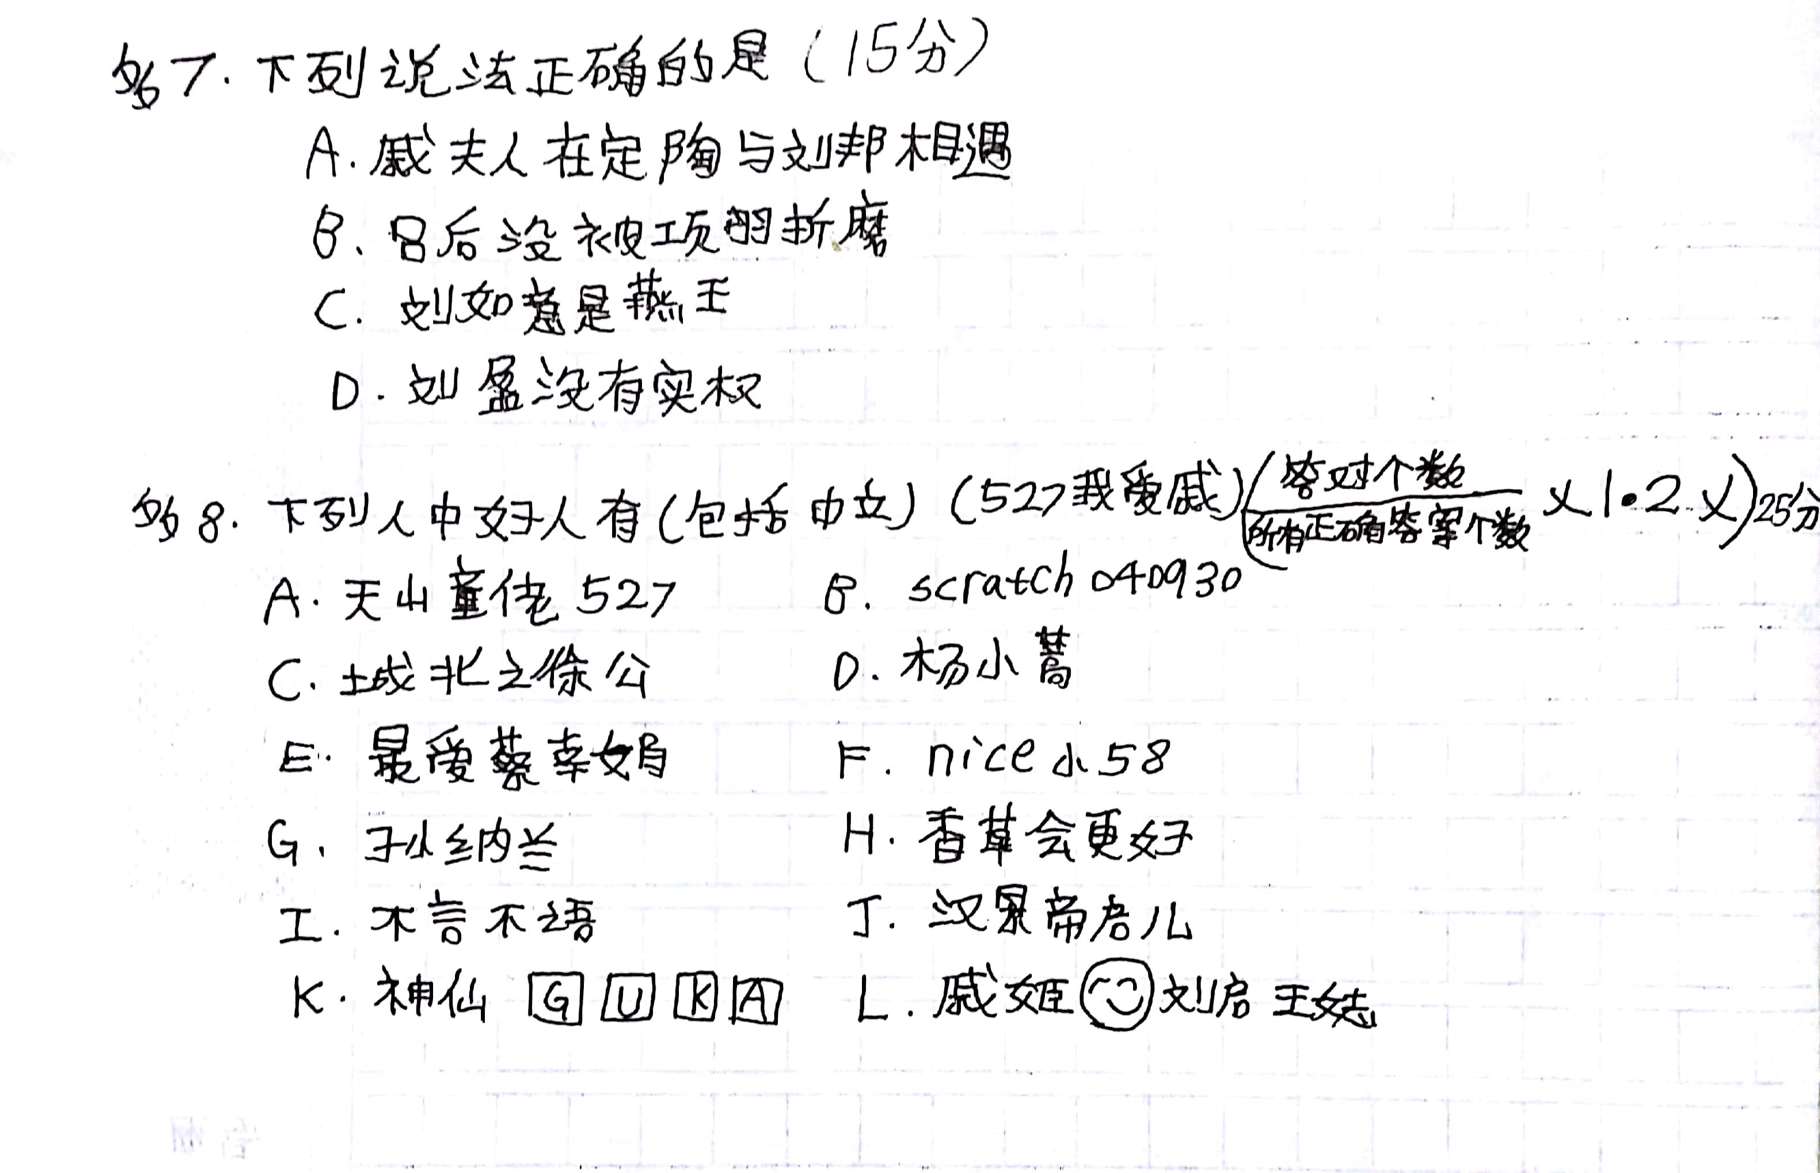 多7.下列说法正确的是(15分)
A.戚夫人在定陶与刘邦相遇
B、吕后没被项羽折磨
C.刘如意是燕王
D.刘盈没有实权
多8.下列人中好人有(包括中立)(527我爱戚)(答对个数/所有正确答案个数×1.2×)25分
A.天山童佬527 B.scratch040930
C.城北之徐公 D.杨小蒿
E.最爱蔡幸娟 F.nice小58
G、孙纳兰 H.香草会更好
I.不言不语 J.汉景帝启儿
K.神仙GUKA L.戚姬刘启王娡